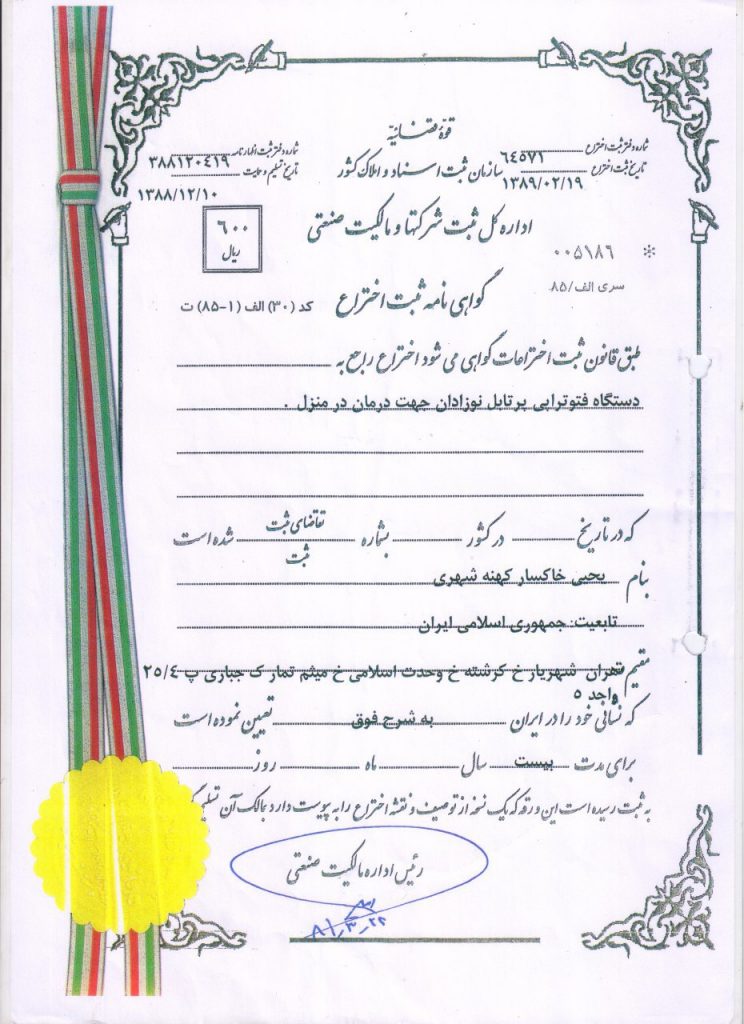 قوهٔ قضائیه
شماره دفتر ثبت اختراع ۶۴۵۷۱
شماره دفتر ثبت اظهارنامه ۳۸۸۱۲۰۴۱۹
سازمان ثبت اسناد و املاک کشور
تاریخ ثبت اختراع ۱۳۸۹/۰۲/۱۹
تاریخ تسلیم و حمایت ۱۳۸۸/۱۲/۱۰
اداره کل ثبت شرکتها و مالکیت صنعتی
۶۰۰
ریال
* ۰۰۵۱۸۶
سری الف/۸۵
گواهی نامه ثبت اختراع
کد (۳۰) الف (۱-۸۵) ت
طبق قانون ثبت اختراعات گواهی می شود اختراع راجع به
دستگاه فتوتراپی پرتابل نوزادان جهت درمان در منزل .
که در تاریخ در کشور بشماره تقاضای ثبت شده است
ثبت
بنام یحیی خاکسار کهنه شهری
تابعیت: جمهوری اسلامی ایران
مقیم تهران شهریار خ کرشته خ وحدت اسلامی خ میثم تمار ک جباری پ ۲۵/۴
واحد ۵
که نشانی خود را در ایران به شرح فوق تعیین نموده است
برای مدت بیست سال ماه روز
به ثبت رسیده است این ورقه که یک نسخه از توصیف و نقشه اختراع را به پیوست دارد بمالک آن
رئیس اداره مالکیت صنعتی